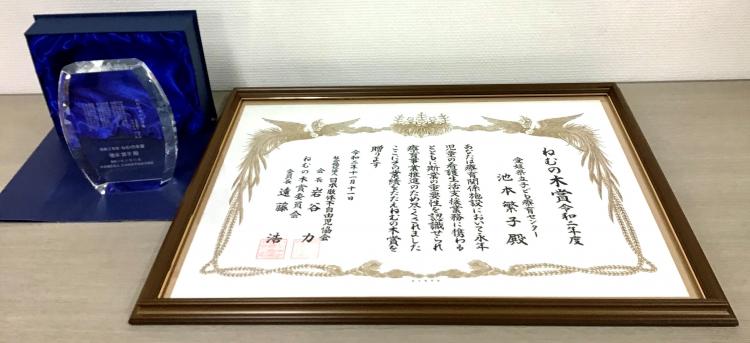 ねむの木賞 令和二年度
愛媛県立子ども療育センター
池本繁子 殿
あなたは療育関係施設において永年
児童の看護生活支援業務に携わる
とともに斯業の重要性を認識せられ
療育事業推進のため尽くされました
ここにその業績をたたえねむの木賞を
贈ります
令和二年十一月十一日
社会福祉法人 日本肢体不自由児協会
会長 岩谷 力
ねむの木賞委員会
委員長 遠藤 浩